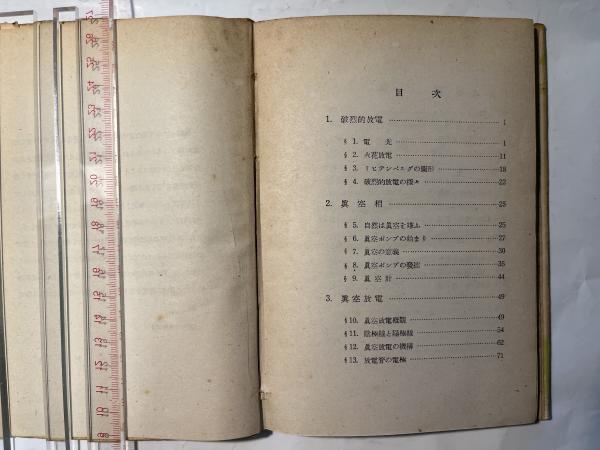 目 次
1. 破烈的放電 1
§1. 電 光 1
§2. 火花放電 11
§3. リヒテンベルグの圖形 18
§4. 破烈的放電の種々 22
2. 眞空相 25
§5. 自然は眞空を嫌ふ 25
§6. 眞空ポンプの始まり 27
§7. 眞空の意義 30
§8. 眞空ポンプの發達 35
§9. 眞空計 44
3. 眞空放電 49
§10. 眞空放電概觀 49
§11. 陰極線と陽極線 54
§12. 眞空放電の機構 62
§13. 放電管の電極 71
27
26
25
24
23
22
21
20
19
18
17
16
15
14
13
12
11
10
9